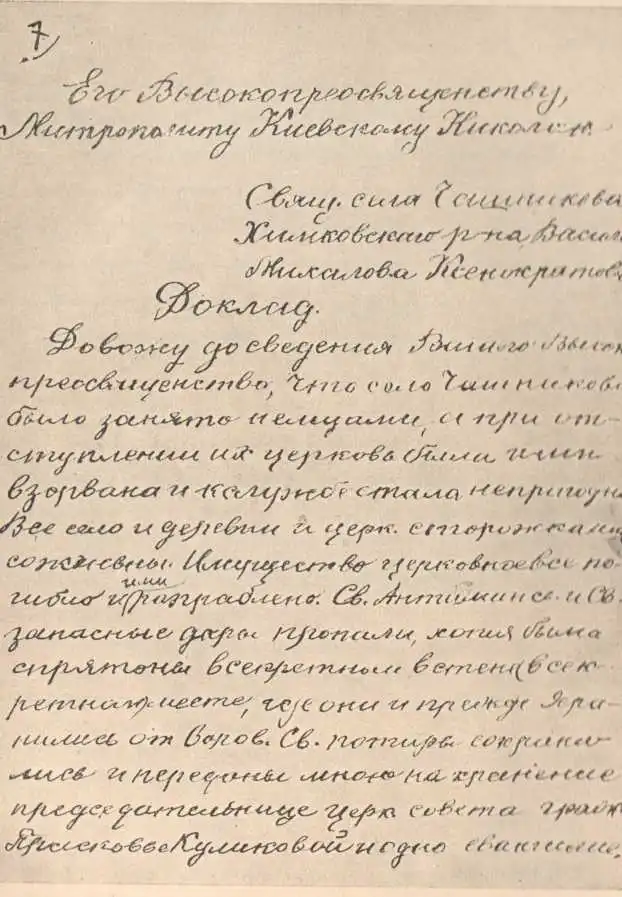 7
Его Высокопреосвященству,
Митрополиту Киевскому Николаю
Свящ. села Чашникова
Химковскаго р-на, Васил
Михалова Ксенократов
Доклад.
Довожу до сведения Вашего Высок
преосвященство, что село Чашников
было занято немцами, а при от-
ступлении их церковь была ими
взорвана и к службе стала непригодн
Все село и деревни и церк. сторожка
сожжены. Имущество церковное все по-
гибло и ими разграблено. Св. Антиминсы и Св.
запасные дары пропали, хотя были
спрятаны в секретном в стене (в сек-
ретном) месте, где они и прежде хра-
нились от воров. Св. потиры сохрани-
лись и переданы мною на хранение
председательнице церк совета граж
Прасковье Куликовой и одно евангелие.